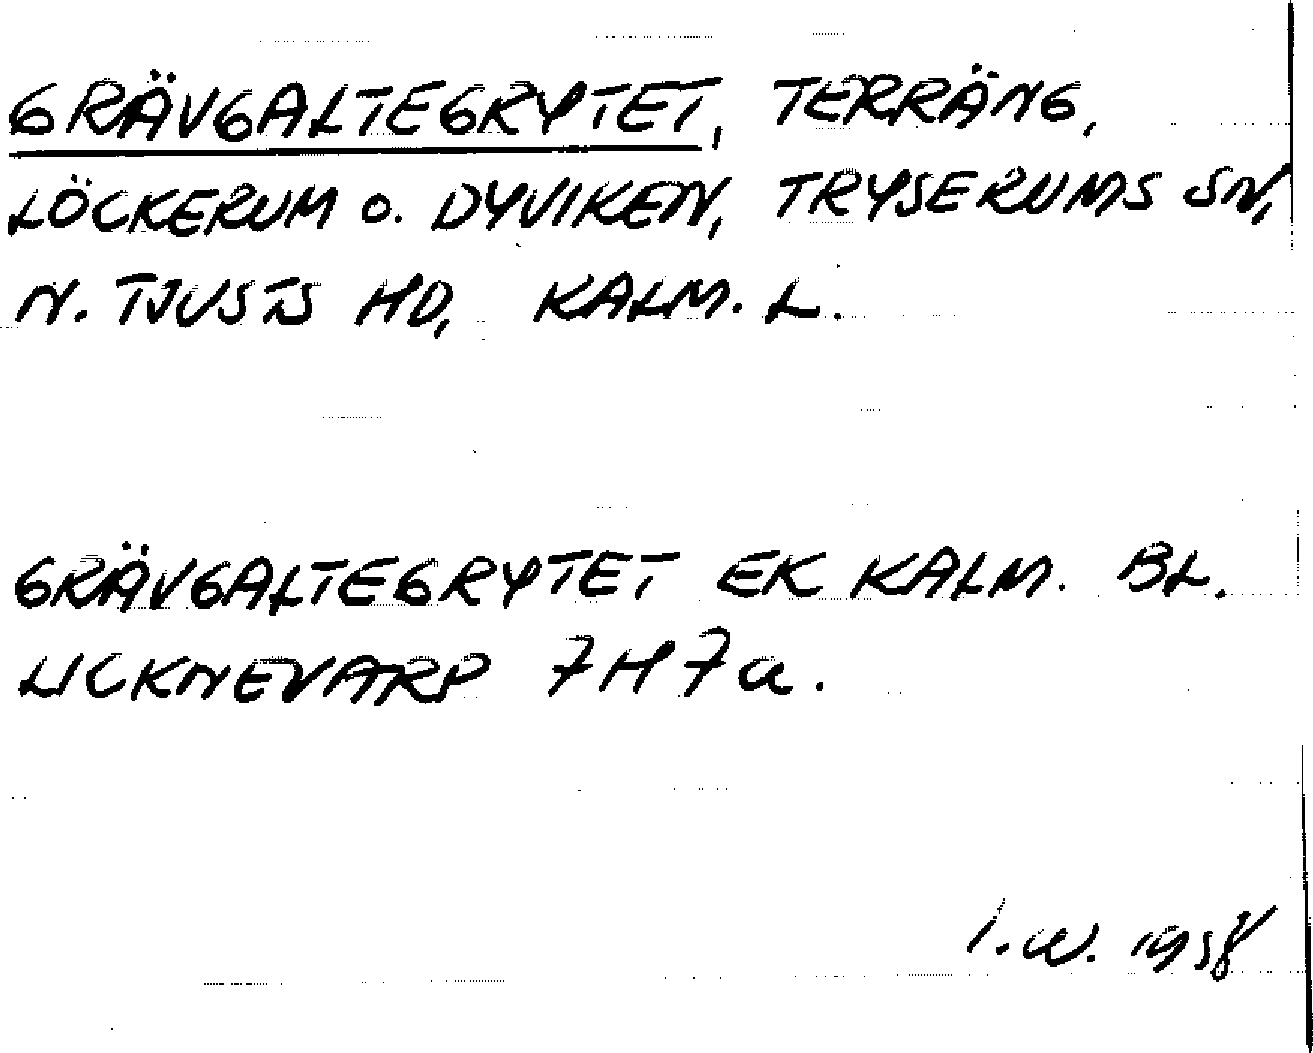 GRÄVGALTEGRYTET, TERRÄNG,
LÖCKERUM o. DYVIKEN, TRYSERUMS SN,
N. TJUSTS HD, KALM. L.
GRÄVGALTEGRYTET EK KALM. BL.
LICKNEVARP 7H7a.
I.W. 1958